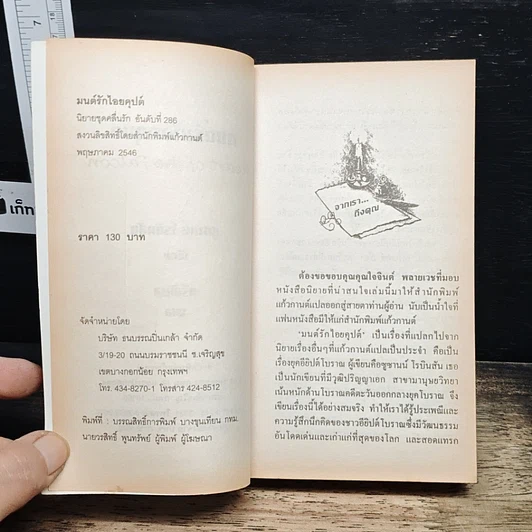 มนต์รักไอยคุปต์
นิยายชุดคลื่นรัก อันดับที่ 286
สงวนลิขสิทธิ์โดยสำนักพิมพ์แก้วกานต์
พฤษภาคม 2546
ราคา 130 บาท
จัดจำหน่ายโดย
บริษัท ธนบรรณปิ่นเกล้า จำกัด
3/19-20 ถนนบรมราชชนนี ซ.เจริญสุข
เขตบางกอกน้อย กรุงเทพฯ
โทร 434-8270-1 โทรสาร 424-8512
พิมพ์ที่ : บรรณสิทธิ์การพิมพ์ บางขุนเทียน กทม.
นายวรสิทธิ์ พูนทรัพย์ ผู้พิมพ์ ผู้โฆษณา
จากเรา...
ถึงคุณ
ต้องขอขอบคุณคุณใจอินต์ พลายเวชที่มอบ
หนังสือนิยายที่น่าสนใจเล่มนี้มาให้สำนักพิมพ์
แก้วกานต์แปลออกสู่สายตาท่านผู้อ่าน นับเป็นน้ำใจที่
แฟนหนังสือมีให้แก่สำนักพิมพ์แก้วกานต์
"มนต์รักไอยคุปต์" เป็นเรื่องที่แปลกไปจาก
นิยายเรื่องอื่นๆที่แก้วกานต์แปลเป็นประจำ คือเป็น
เรื่องยุคอียิปต์โบราณ ผู้เขียนคือซูซานน์ โรบินสัน เธอ
เป็นนักเขียนที่มีวุฒิปริญญาเอก สาขามานุษยวิทยา
เน้นหนักด้านโบราณคดีตะวันออกกลางยุคโบราณ จึง
เขียนเรื่องนี้ได้อย่างสมจริง ทำให้เราได้รู้ประเพณีและ
ความรู้สึกนึกคิดของชาวอียิปต์โบราณซึ่งมีวัฒนธรรม
อันโดดเด่นและเก่าแก่ที่สุดของโลก และสอดแทรก
เก็ก